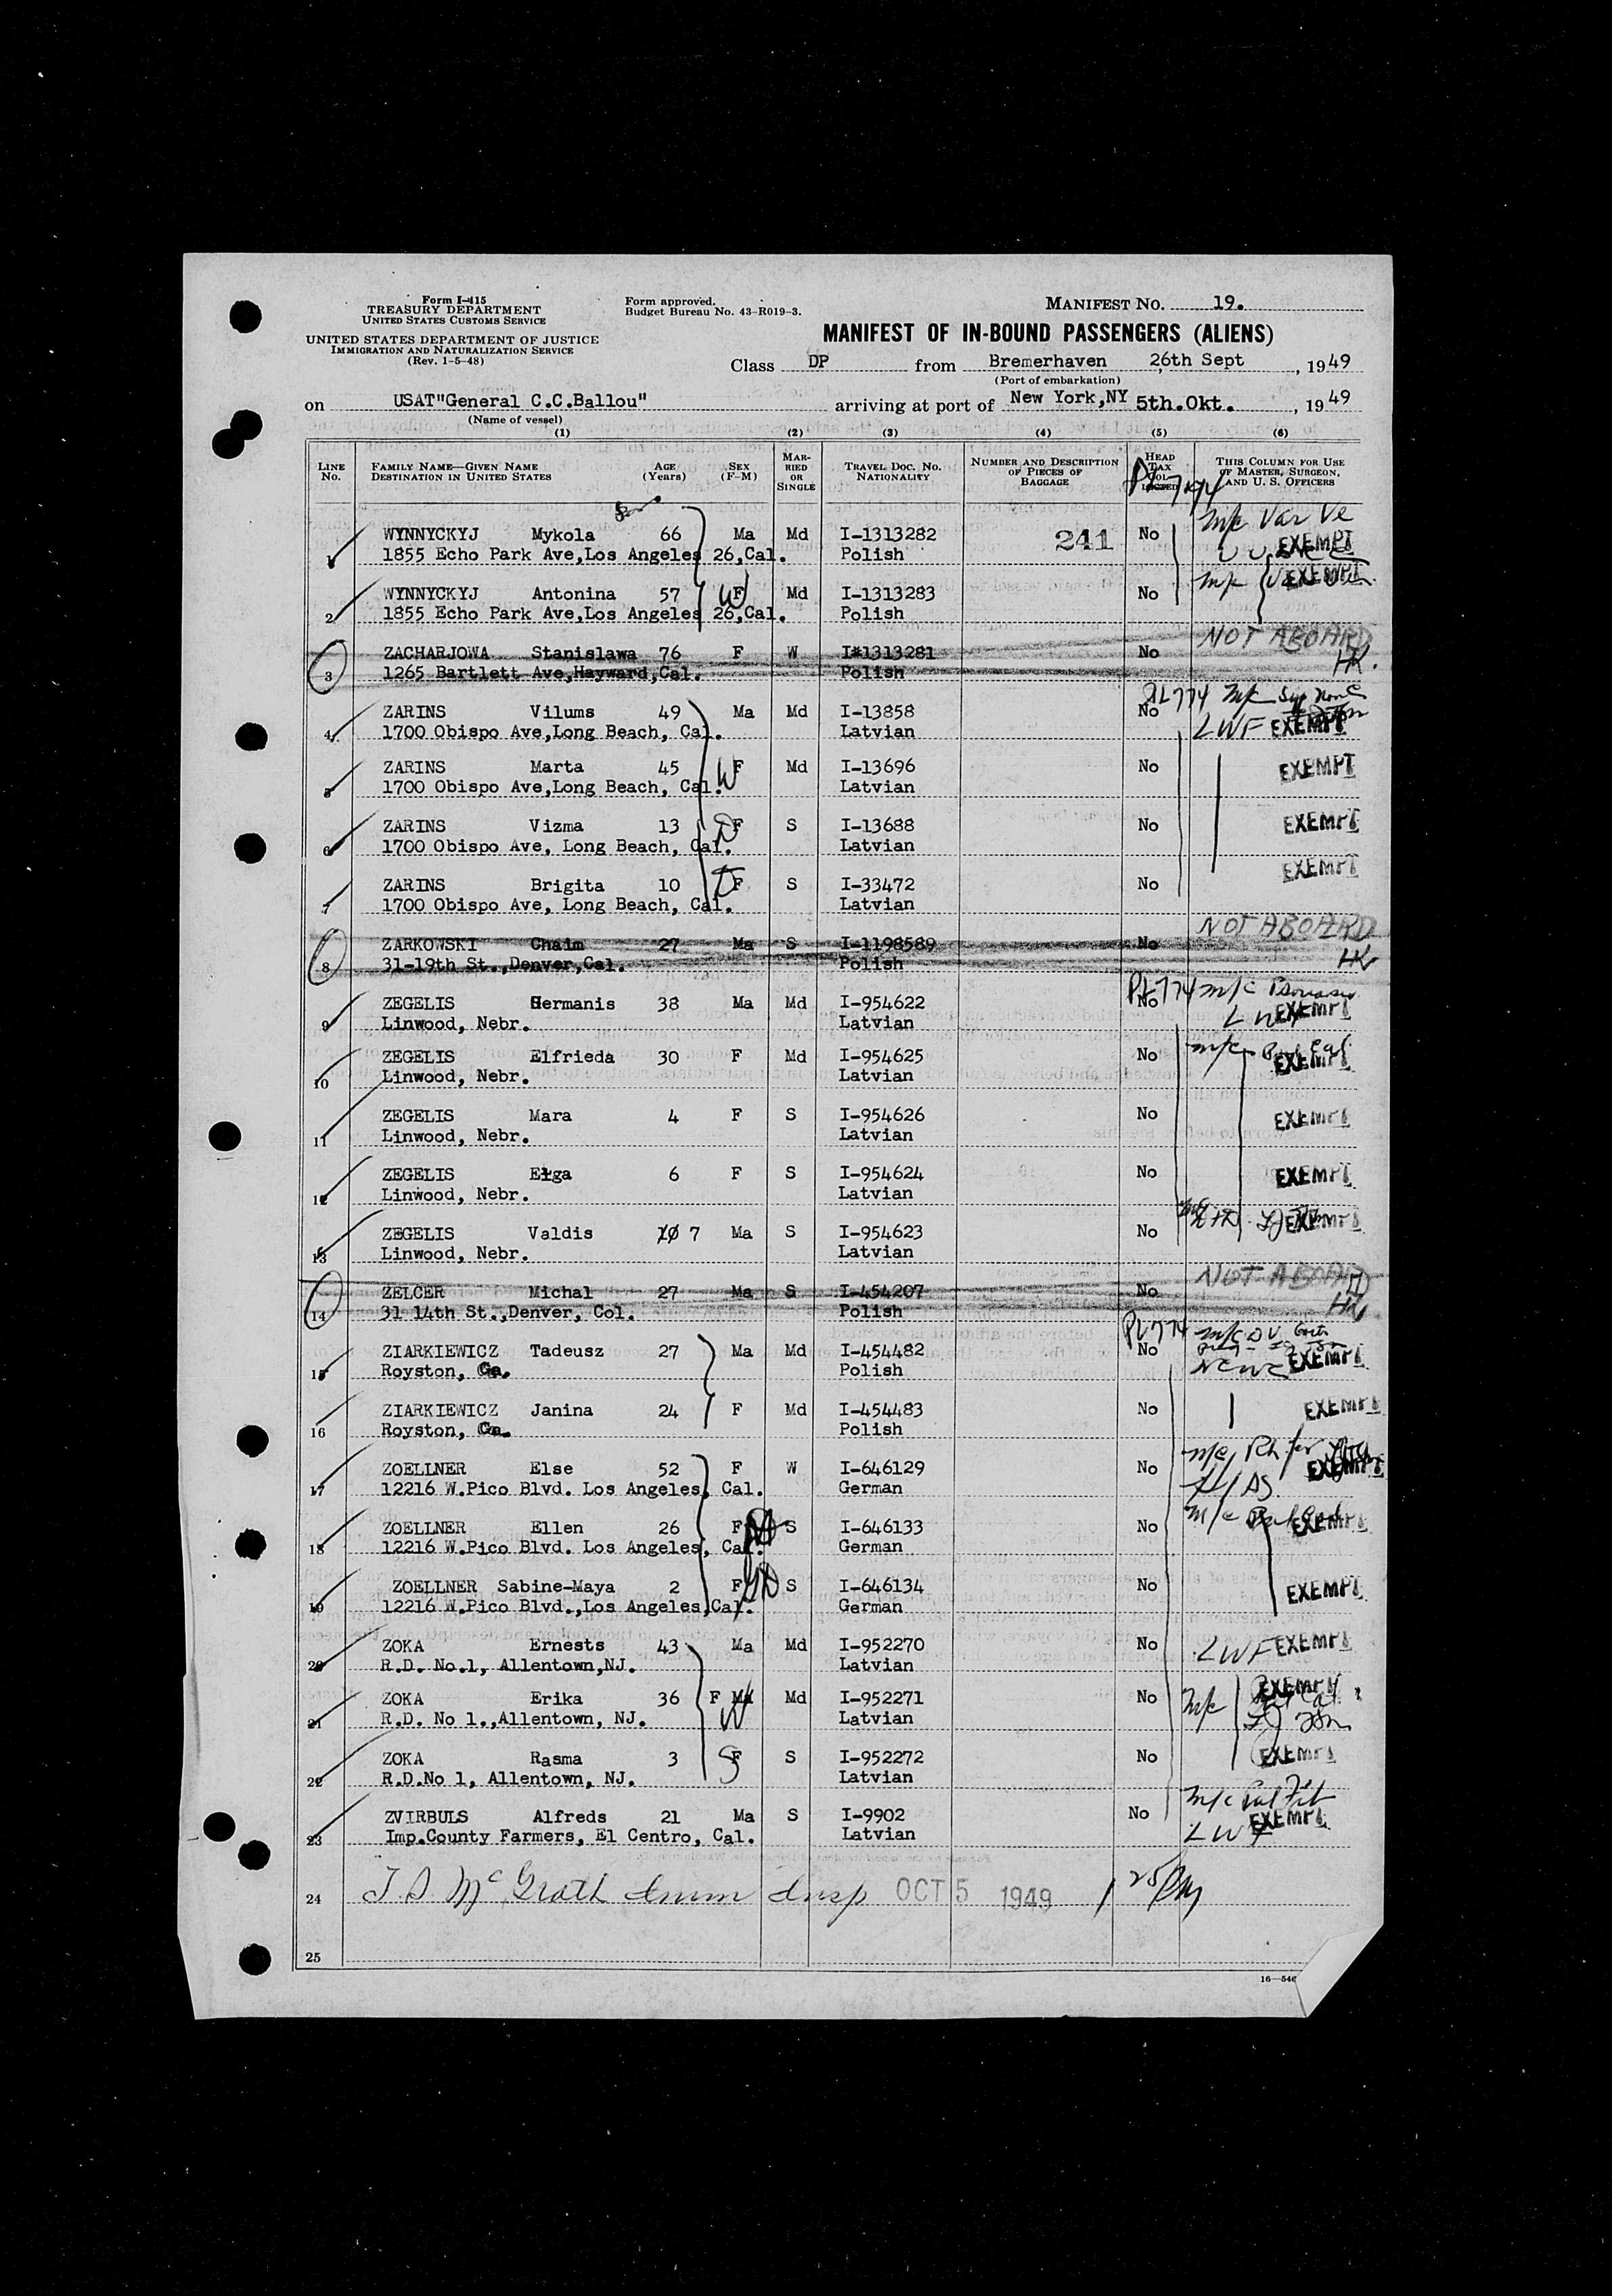 Form I-415
TREASURY DEPARTMENT
UNITED STATES CUSTOMS SERVICE
UNITED STATES DEPARTMENT OF JUSTICE
IMMIGRATION AND NATURALIZATION SERVICE
(Rev. 1-5-48)
Form approved.
Budget Bureau No. 43-R019-3.
MANIFEST NO. 19.
MANIFEST OF IN-BOUND PASSENGERS (ALIENS)
Class DP from Bremerhaven 26th Sept, 1949
(Port of embarkation)
on USAT"General C.C.Ballou" arriving at port of New York,NY 5th.Okt., 1949
(Name of vessel)
(1) (2) (3) (4) (5) (6)
LINE No. FAMILY NAME—GIVEN NAME DESTINATION IN UNITED STATES AGE (Years) SEX (F-M) MARRIED OR SINGLE TRAVEL DOC. NO. NATIONALITY NUMBER AND DESCRIPTION OF PIECES OF BAGGAGE HEAD TAX COLLECTED THIS COLUMN FOR USE OF MASTER, SURGEON, AND U. S. OFFICERS
PL 774
WYNNYCKYJ Mykola 66 Ma Md I-1313282 241 No m/c Var Ve
1 1855 Echo Park Ave,Los Angeles 26,Cal. Polish EXEMPT
WYNNYCKYJ Antonina 57 W F Md I-1313283 No m/c EXEMPT
2 1855 Echo Park Ave,Los Angeles 26,Cal. Polish
ZACHARJOWA Stanislawa 76 F W I-1313281 No NOT ABOARD
3 1265 Bartlett Ave,Hayward,Cal. Polish HK.
ZARINS Vilums 49 Ma Md I-13858 No PL 774 m/c
4 1700 Obispo Ave,Long Beach, Cal. Latvian LWF EXEMPT
ZARINS Marta 45 W F Md I-13696 No EXEMPT
5 1700 Obispo Ave,Long Beach, Cal. Latvian
ZARINS Vizma 13 D F S I-13688 No EXEMPT
6 1700 Obispo Ave, Long Beach, Cal. Latvian
ZARINS Brigita 10 F S I-33472 No EXEMPT
7 1700 Obispo Ave, Long Beach, Cal. Latvian
ZARKOWSKI Chaim 27 Ma S I-1198589 No NOT ABOARD
8 31-19th St.,Denver,Cal. Polish HK
ZEGELIS Hermanis 38 Ma Md I-954622 No PL 774 m/c Psoriasis
9 Linwood, Nebr. Latvian EXEMPT
ZEGELIS Elfrieda 30 F Md I-954625 No m/c EXEMPT
10 Linwood, Nebr. Latvian
ZEGELIS Mara 4 F S I-954626 No EXEMPT
11 Linwood, Nebr. Latvian
ZEGELIS Elga 6 F S I-954624 No EXEMPT
12 Linwood, Nebr. Latvian
ZEGELIS Valdis 10 7 Ma S I-954623 No EXEMPT
13 Linwood, Nebr. Latvian
ZELCER Michal 27 Ma S I-454207 No NOT ABOARD
14 31 14th St.,Denver, Col. Polish HK
ZIARKIEWICZ Tadeusz 27 Ma Md I-454482 No PL 774 m/c
15 Royston, Ga. Polish NCWC EXEMPT
ZIARKIEWICZ Janina 24 F Md I-454483 No EXEMPT
16 Royston, Ga. Polish
ZOELLNER Else 52 F W I-646129 No m/c EXEMPT
17 12216 W.Pico Blvd. Los Angeles, Cal. German
ZOELLNER Ellen 26 F S I-646133 No m/c EXEMPT
18 12216 W.Pico Blvd. Los Angeles, Cal. German
ZOELLNER Sabine-Maya 2 F GD S I-646134 No EXEMPT
19 12216 W.Pico Blvd.,Los Angeles,Cal. German
ZOKA Ernests 43 Ma Md I-952270 No LWF EXEMPT
20 R.D. No.1, Allentown,NJ. Latvian
ZOKA Erika 36 F Ma W Md I-952271 No m/c EXEMPT
21 R.D. No 1.,Allentown, NJ. Latvian
ZOKA Rasma 3 F S I-952272 No EXEMPT
22 R.D.No 1, Allentown, NJ. Latvian
ZVIRBULS Alfreds 21 Ma S I-9902 No m/c EXEMPT
23 Imp.County Farmers, El Centro, Cal. Latvian LWF
24 J S McGrath Imm Insp OCT 5 1949
25